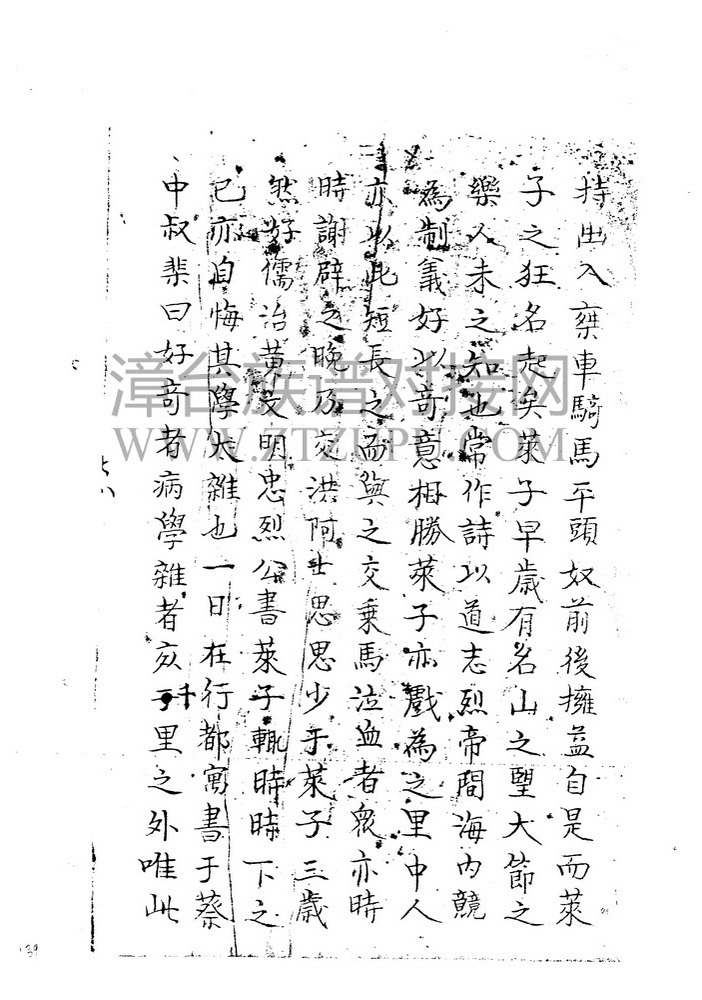 持出入乘車騎馬平頭奴前後擁蓋自是而萊
子之狂名起矣萊子早歲有名山之望大節之
樂人未之知也常作詩以道志烈帝間海內競
為制義好以奇意相勝萊子亦戲為之里中人
亦以此短長之而與之交乘馬泣血者衆亦時
時謝辟之晚乃交洪阿士思思少于萊子三歲
然好儒治黃文明忠烈公書萊子輒時時下之
已亦自悔其學大雜也一日在行都寓書于蔡
中叔棐曰好奇者病學雜者亥千里之外唯此
漳台族谱对接网
WWW.ZTZUPU.COM
139